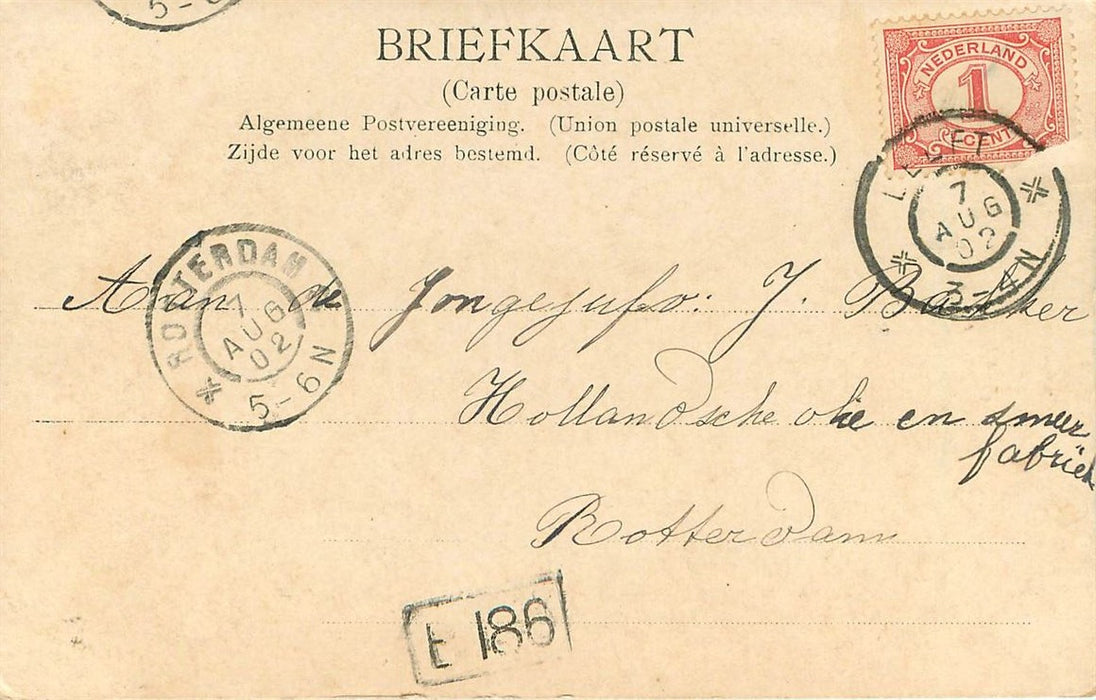 5-6
BRIEFKAART
(Carte postale)
Algemeene Postvereeniging. (Union postale universelle.)
Zijde voor het adres bestemd. (Côté réservé à l'adresse.)
NEDERLAND
1
CENT
DELFT
7
AUG
02
3-4N
ROTTERDAM
7
AUG
02
5-6N
Aan de Jongejufvr: J. Bakker
Hollandsche olie en smeer
fabriek
Rotterdam
E 186